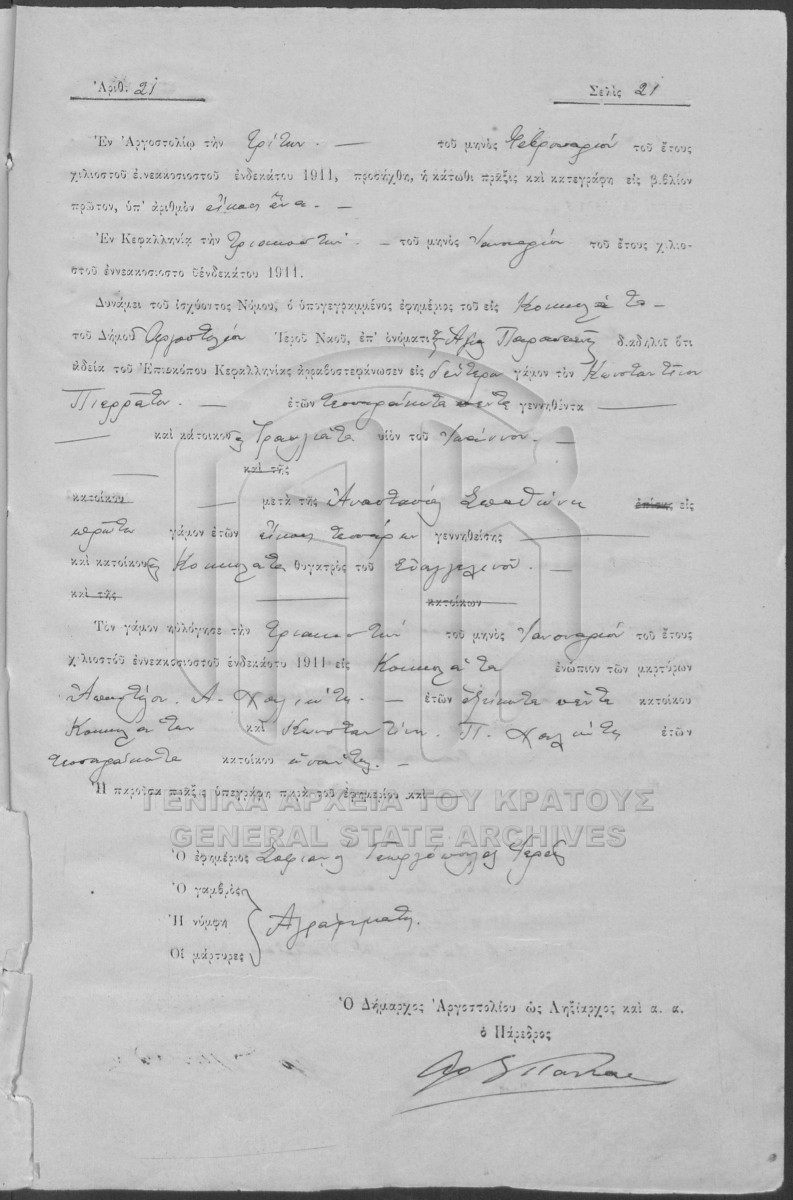 Ἀριθ. 21
Σελὶς 21
Ἐν Ἀργοστολίῳ τὴν τρίτην. — τοῦ μηνὸς Φεβρουαρίου τοῦ ἔτους
χιλιοστοῦ ἐννεακοσιοστοῦ ἑνδεκάτου 1911, προσήχθη, ἡ κάτωθι πρᾶξις καὶ κατεγράφη εἰς βιβλίον
πρῶτον, ὑπ' ἀριθμὸν εἴκοσι ἕνα. —
Ἐν Κεφαλληνίᾳ τὴν τριακοστὴν. — τοῦ μηνὸς Ἰανουαρίου τοῦ ἔτους χιλιο-
στοῦ ἐννεακοσιοστο ῦἑνδεκάτου 1911.
Δυνάμει τοῦ ἰσχύοντος Νόμου, ὁ ὑπογεγραμμένος ἐφημέριος τοῦ εἰς Κοκκολάτα —
τοῦ Δήμου Ἀργοστολίου Ἱεροῦ Ναοῦ, ἐπ' ὀνόματι Ἁγία Παρασκευὴ διαδηλοῖ ὅτι
ἀδείᾳ τοῦ Ἐπισκόπου Κεφαλληνίας ἀρραβοστεφάνωσεν εἰς δεύτερον γάμον τὸν Κωνσταντῖνον
Πιερράτον. — ἐτῶν τεσσαράκοντα πέντε γεννηθέντα —
— καὶ κάτοικον Τρωϊανάτα υἱὸν τοῦ Ἰωάννου. —
— καὶ τῆς
κατοίκου — μετὰ τῆς Ἀναστασίας εἰς
πρῶτον γάμον ἐτῶν εἴκοσι τεσσάρων γεννηθείσης —
καὶ κατοίκου Κοκκολάτα θυγατρὸς τοῦ Εὐαγγελινοῦ. —
καὶ τῆς — κατοίκων —
Τὸν γάμον ηὐλόγησε τὴν τριακοστὴν τοῦ μηνὸς Ἰανουαρίου τοῦ ἔτους
χιλιοστοῦ ἐννεακοσιοστοῦ ἑνδεκάτου 1911 εἰς Κοκκολάτα ἐνώπιον τῶν μαρτύρων
Ἀποστόλου. Α. — ἐτῶν ἑξήκοντα πέντε κατοίκου
Κοκκολάτων καὶ Κωνσταντίνου. Π. ἐτῶν
τεσσαράκοντα κατοίκου —
Ἡ παροῦσα πρᾶξις ὑπεγράφη παρὰ τοῦ ἐφημερίου καὶ —
ΓΕΝΙΚΑ ΑΡΧΕΙΑ ΤΟΥ ΚΡΑΤΟΥΣ
GENERAL STATE ARCHIVES
Ὁ ἐφημέριος Γεωργόπουλος Ἱερεὺς
Ὁ γαμβρὸς
Ἡ νύμφη Ἀγράμματοι.
Οἱ μάρτυρες
Ὁ Δήμαρχος Ἀργοστολίου ὡς Ληξίαρχος καὶ α. α.
ὁ Πάρεδρος